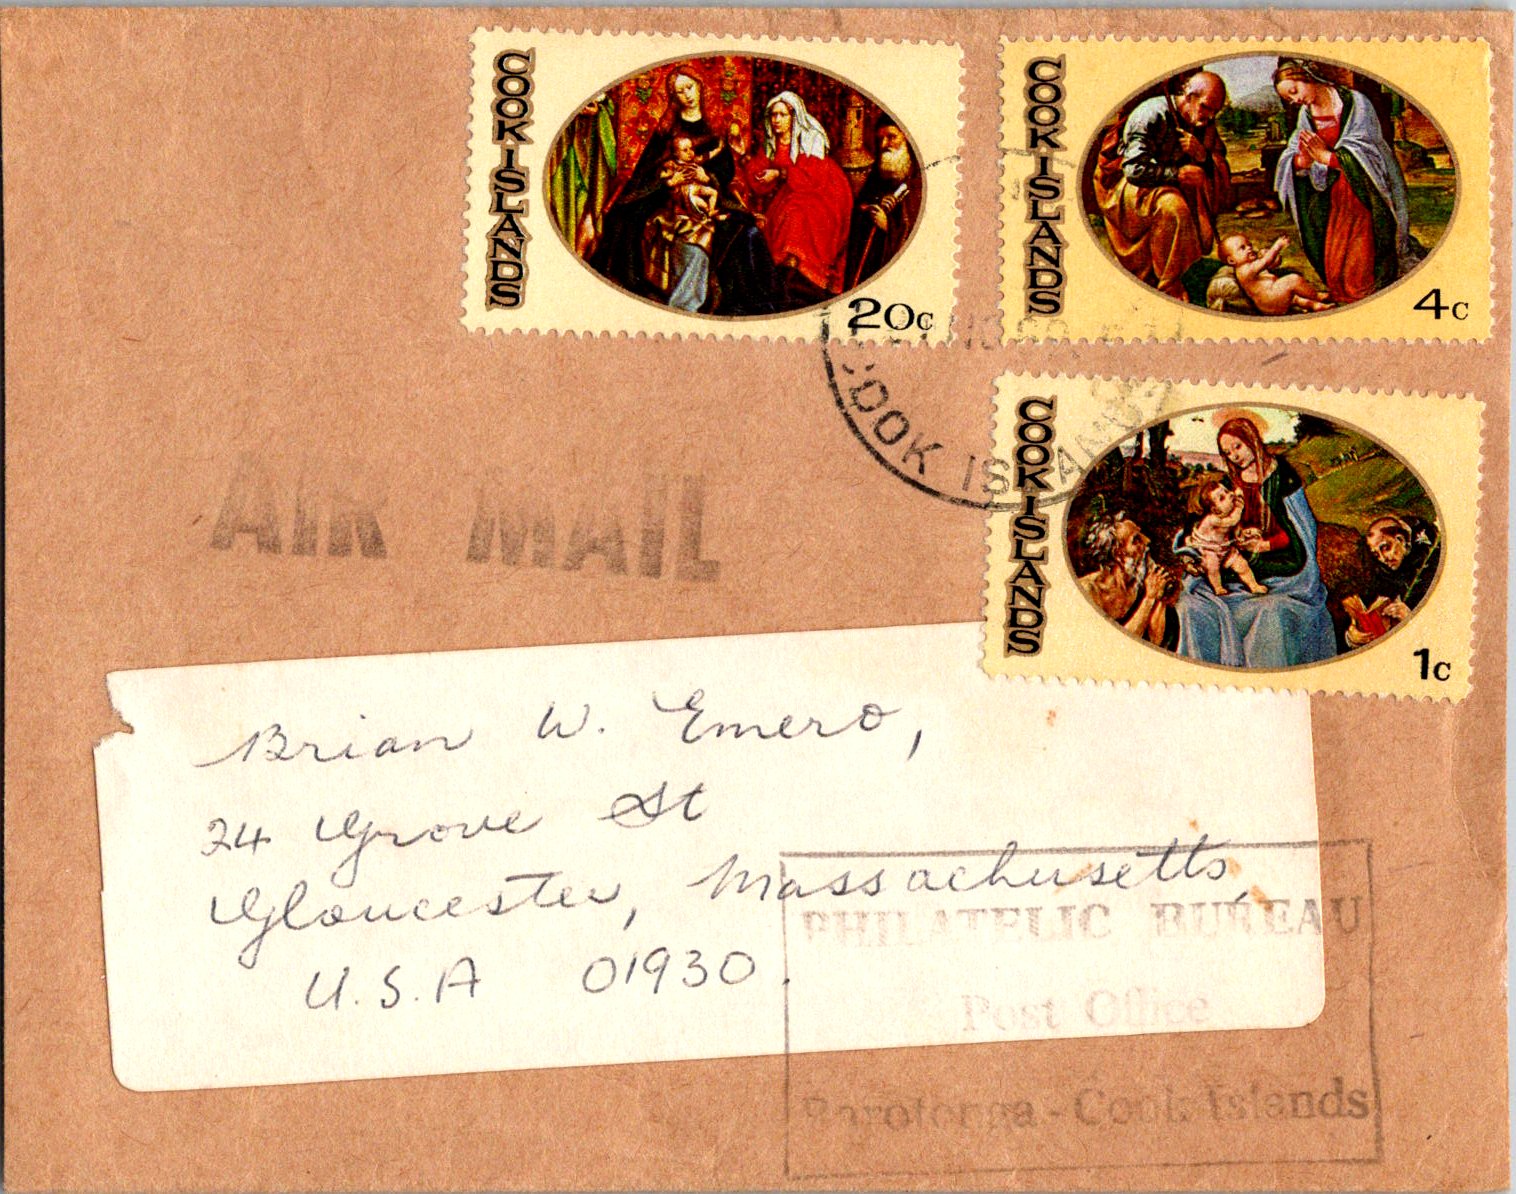 COOK ISLANDS
20c
COOK ISLANDS
4c
COOK ISLANDS
1c
COOK ISLANDS
AIR MAIL
Brian W. Emero,
24 Grove St
Gloucester, Massachusetts,
U.S.A 01930.
PHILATELIC BUREAU
Post Office
Rarotonga - Cook Islands